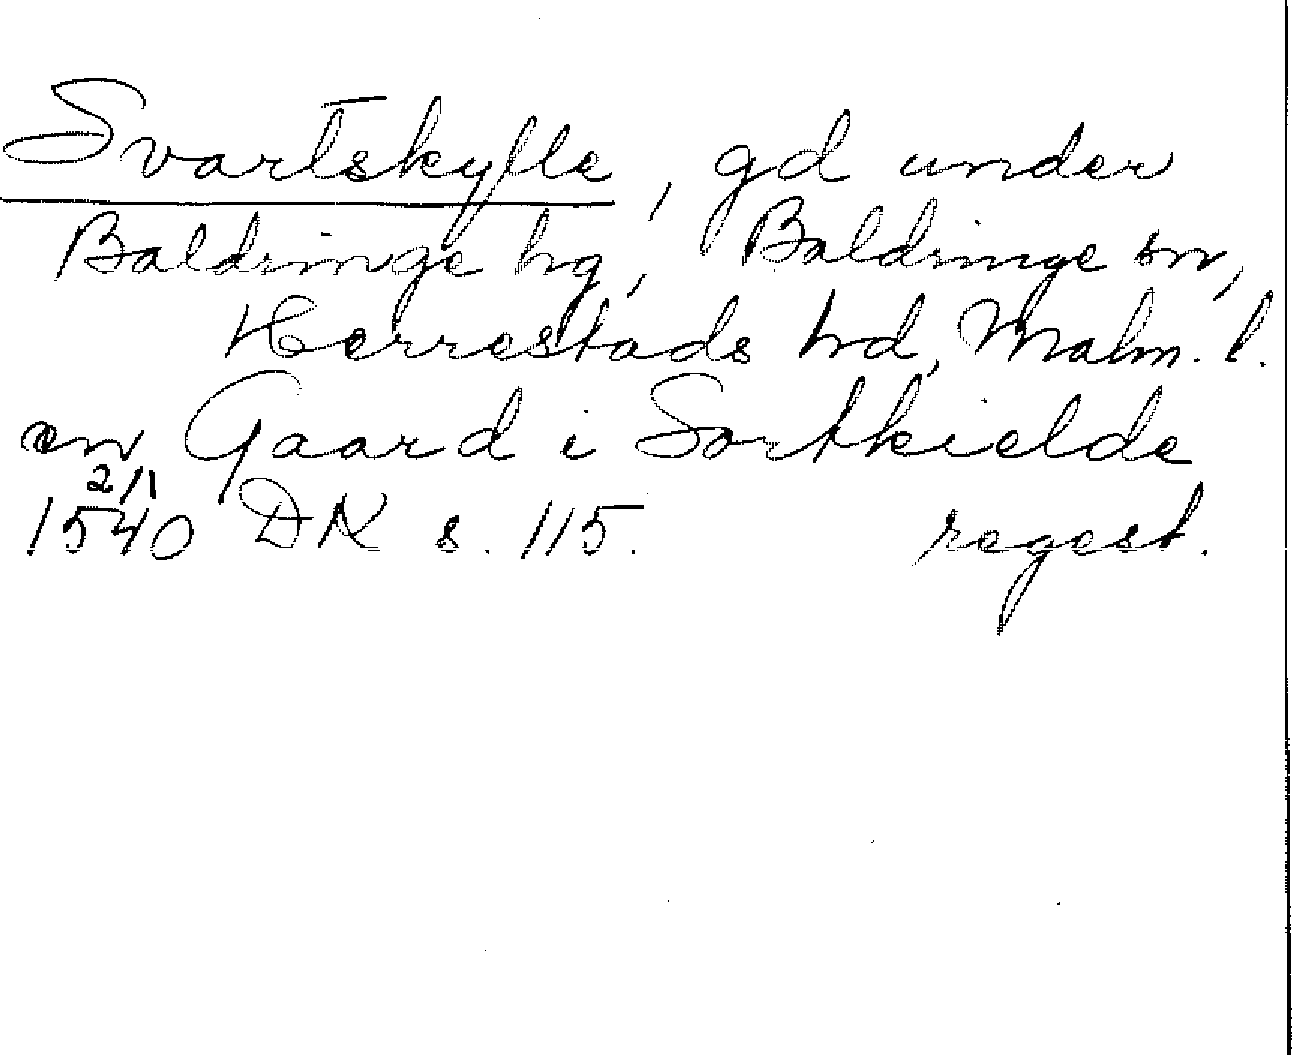 Svartskylle, gd under
Baldringe hg, Baldringe sn,
Herrestads hd, Malm. l.
en Gaard i Sortkielde
2/1
1540 DK s. 115. regest.